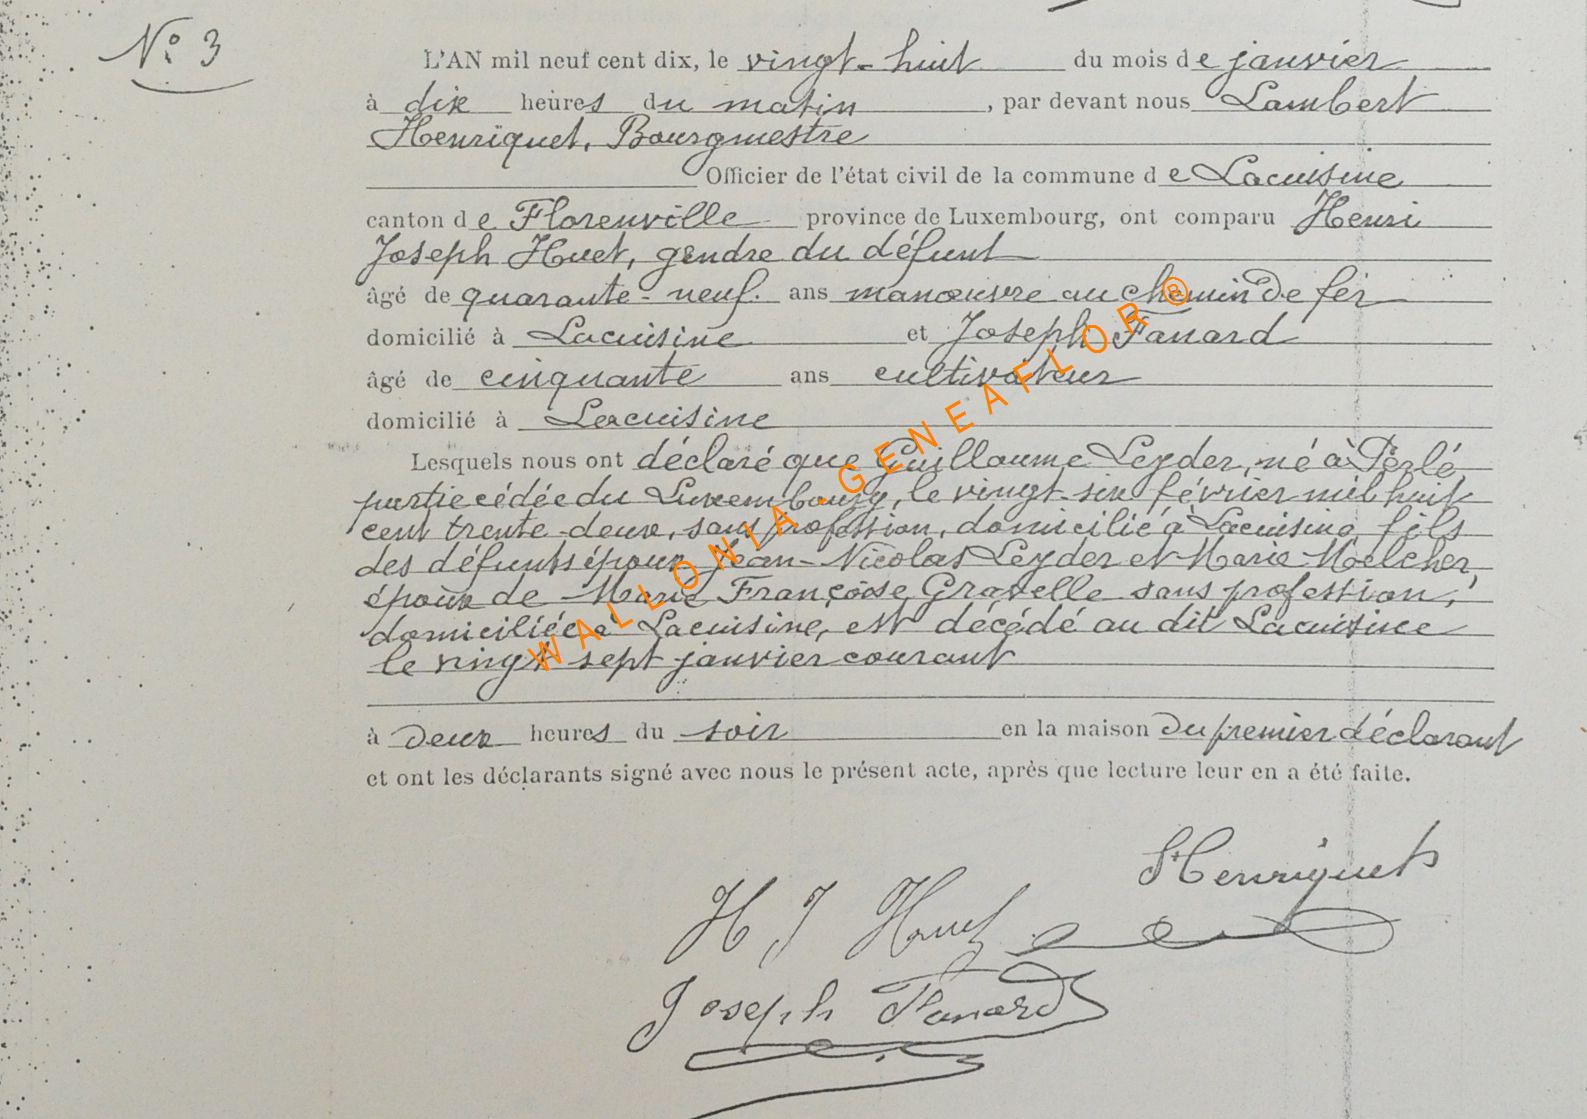 N° 3
L'AN mil neuf cent dix, le vingt-huit du mois de janvier
à dix heures du matin, par devant nous Lambert
Henriquet, Bourgmestre
Officier de l'état civil de la commune de Lacuisine
canton de Florenville province de Luxembourg, ont comparu Henri
Joseph Huet, gendre du défunt
âgé de quarante-neuf ans manœuvre au chemin de fer
domicilié à Lacuisine et Joseph Fanard
âgé de cinquante ans cultivateur
domicilié à Lacuisine
Lesquels nous ont déclaré que Guillaume Leyder, né à Perlé
partie cédée du Luxembourg, le vingt-six février mil huit
cent trente-deux, sans profession, domicilié à Lacuisine, fils
des défunts époux Jean-Nicolas Leyder et Marie Moelcher,
époux de Marie Françoise Gravelle sans profession,
domiciliée à Lacuisine, est décédé au dit Lacuisine
le vingt sept janvier courant
à deux heures du soir en la maison du premier déclarant
et ont les déclarants signé avec nous le présent acte, après que lecture leur en a été faite.
Henriquet
H J Huet
Joseph Fanard
WALLONIA-GENEAFLOR ®